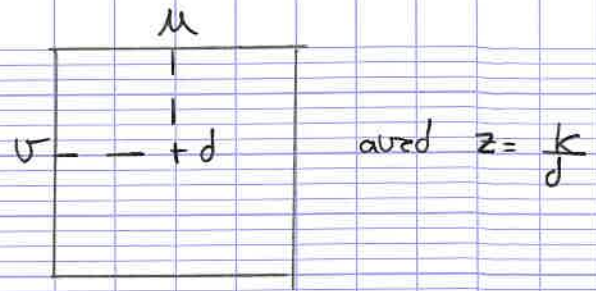 u
v + d avec z = k/d